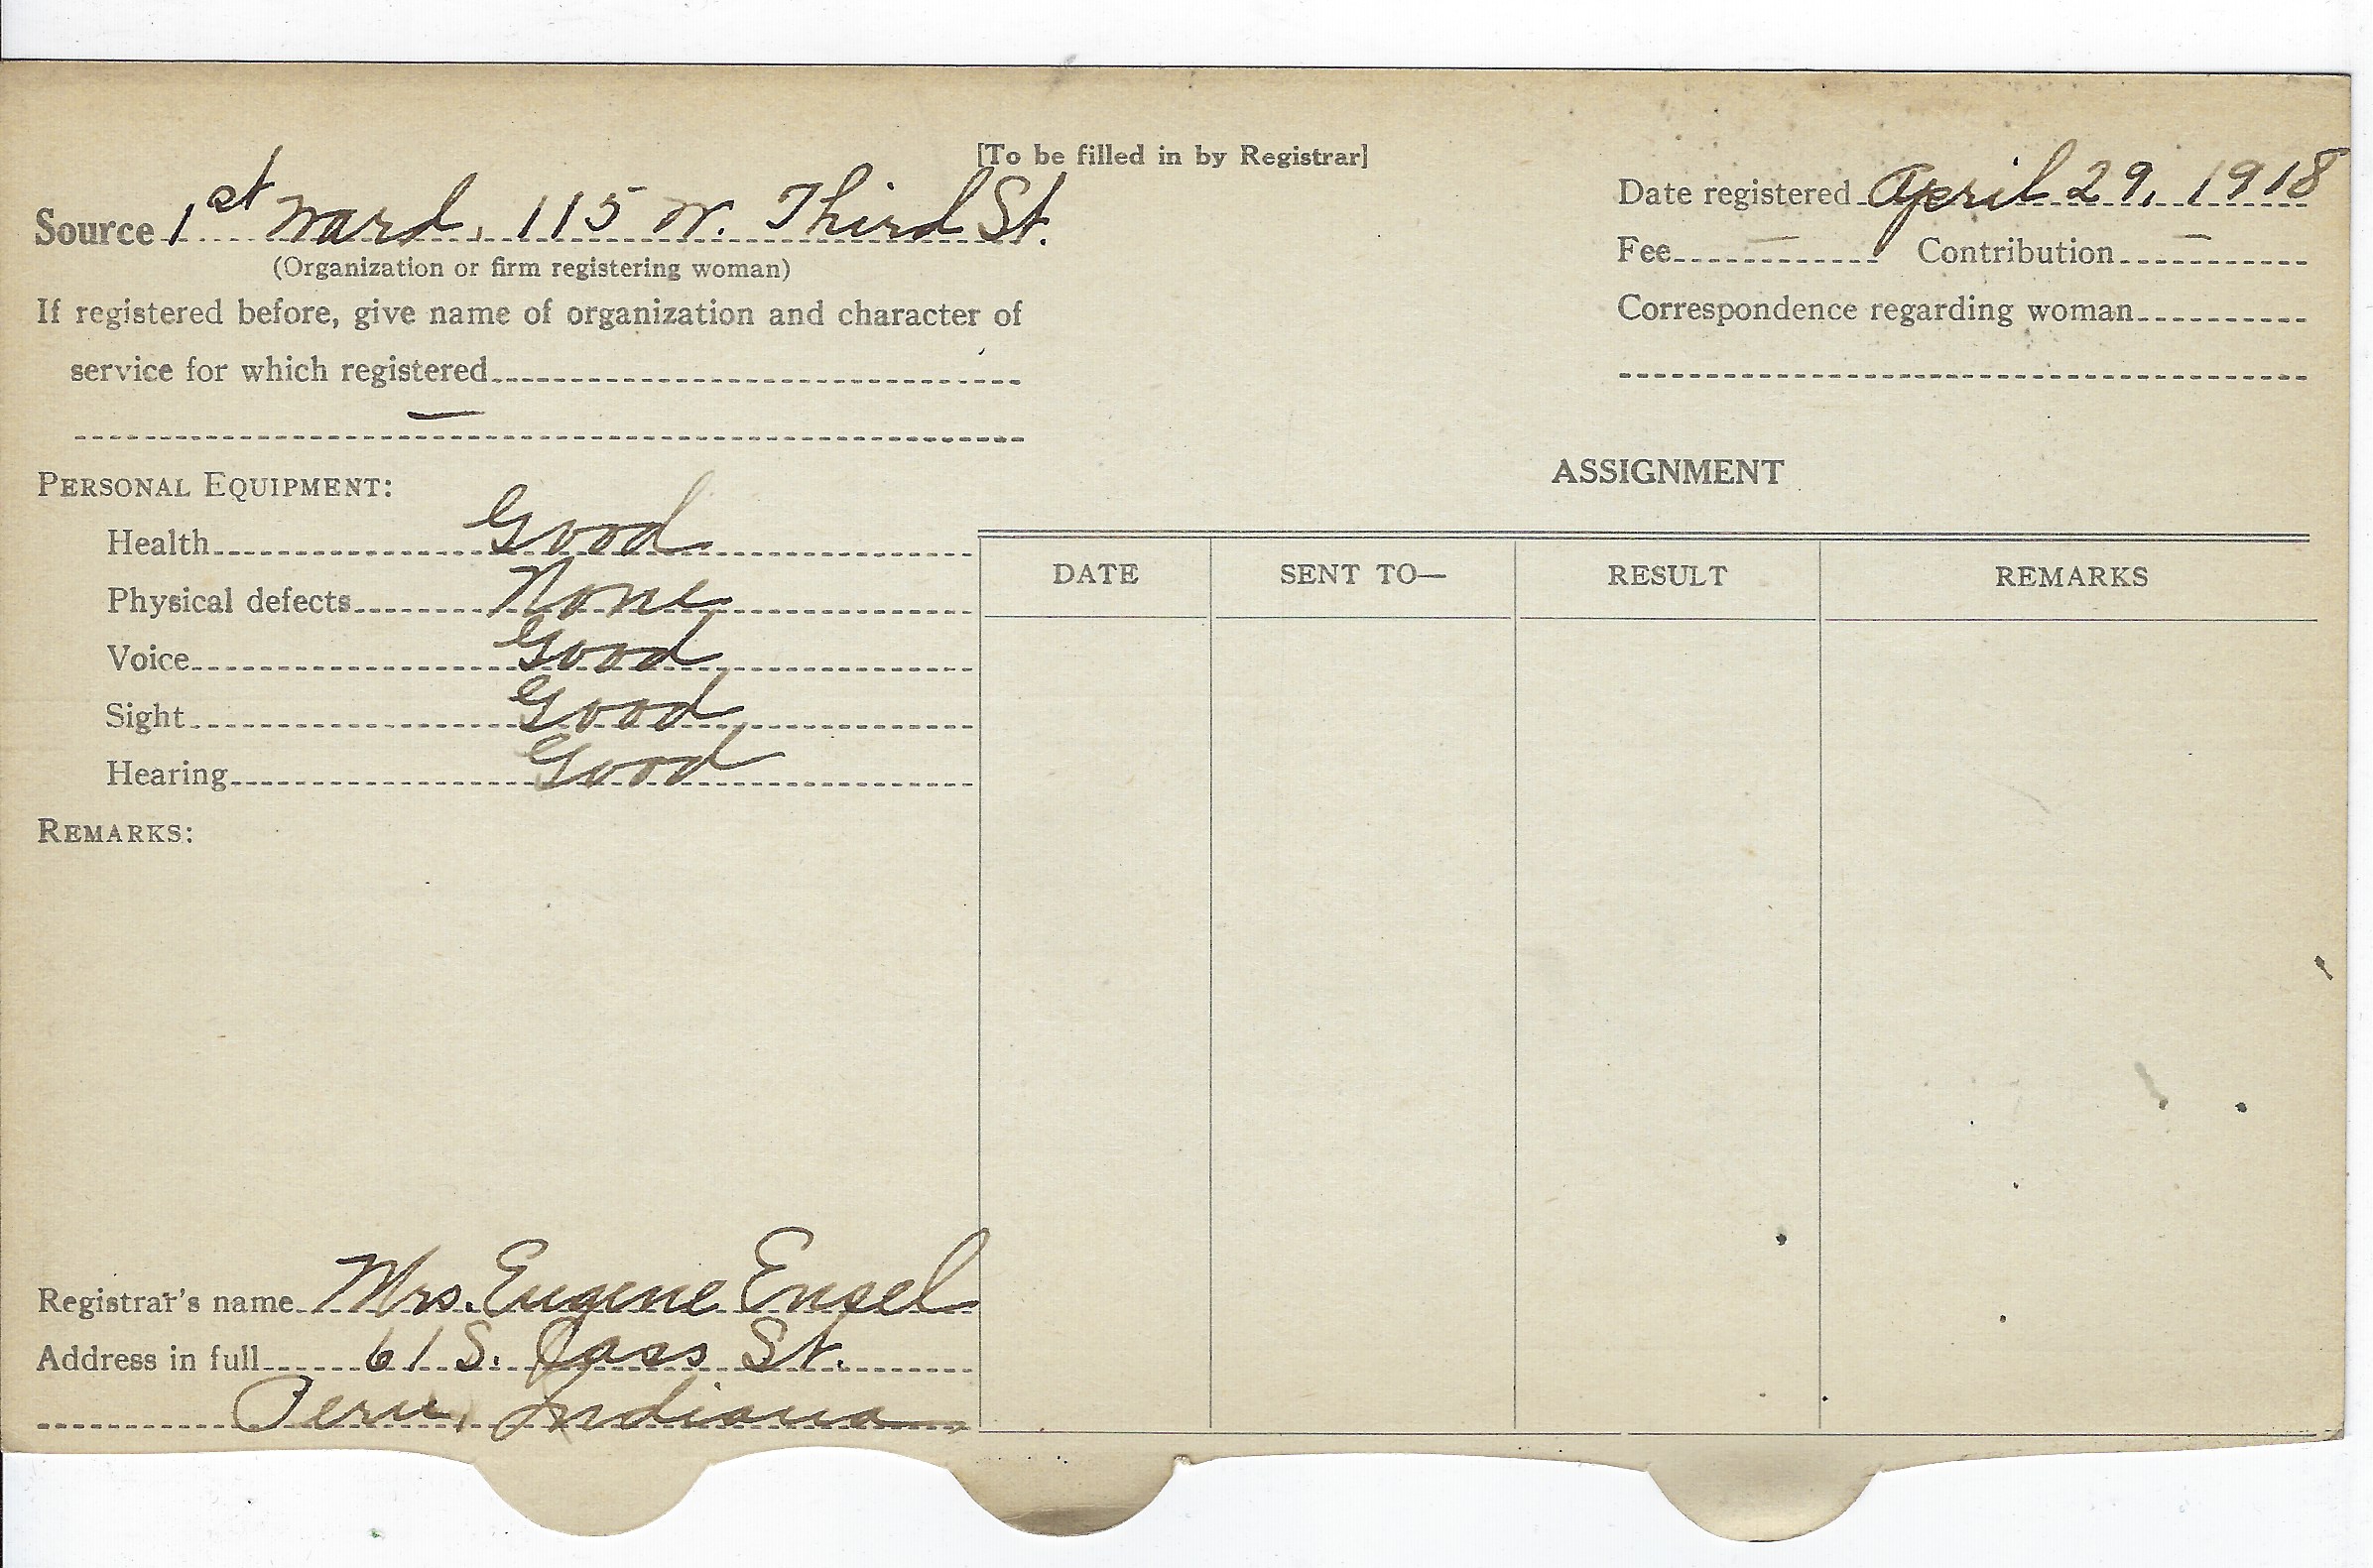 [To be filled in by Registrar]
Source 1st Ward, 115 W. Third St.
(Organization or firm registering woman)
If registered before, give name of organization and character of
service for which registered
—
Date registered April 29, 1918
Fee — Contribution —
Correspondence regarding woman
PERSONAL EQUIPMENT:
Health Good
Physical defects None
Voice Good
Sight Good
Hearing Good
REMARKS:
Registrar's name Mrs. Eugene Ensel
Address in full 61 S. Cass St.
Peru, Indiana
ASSIGNMENT
DATE SENT TO— RESULT REMARKS